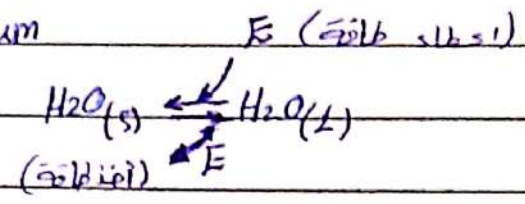 E (إعطاء طاقة)
H2O(s) ⇄ H2O(L)
(أخذ طاقة) E